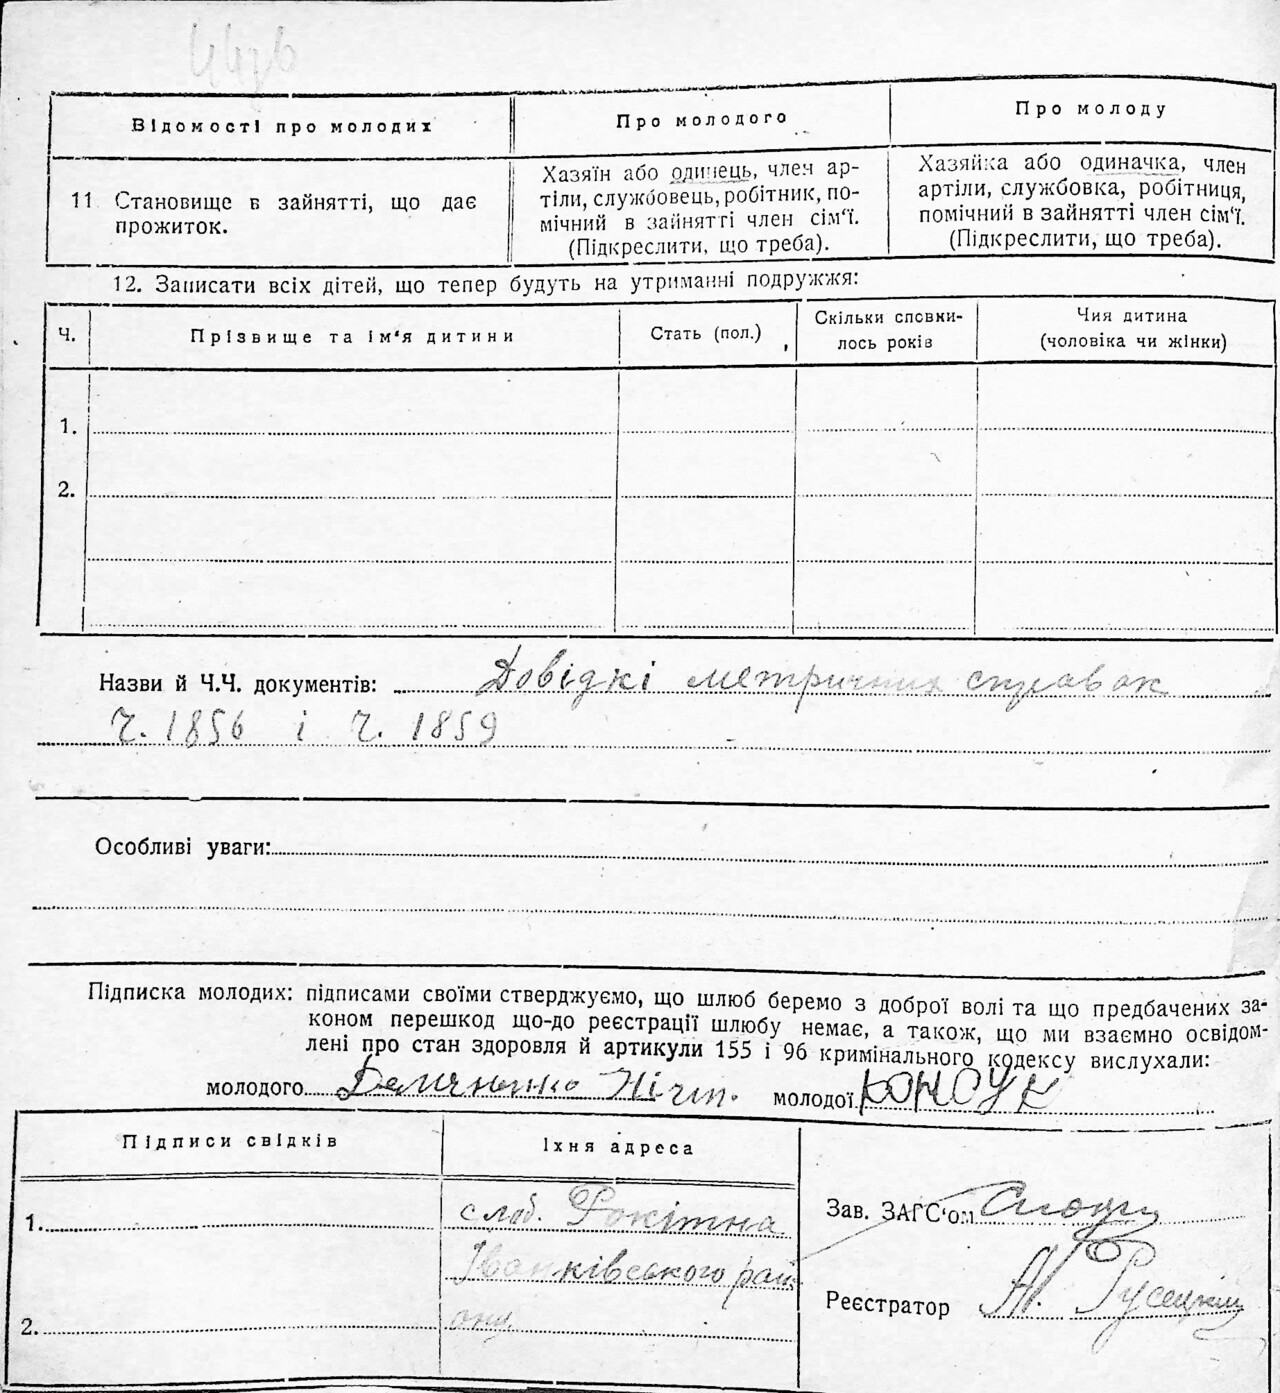 Відомості про молодих
Про молодого
Про молоду
11 Становище в зайнятті, що дає
прожиток.
Хазяїн або одинець, член ар-
тіли, службовець, робітник, по-
мічний в зайнятті член сім'ї.
(Підкреслити, що треба).
Хазяйка або одиначка, член
артіли, службовка, робітниця,
помічний в зайнятті член сім'ї.
(Підкреслити, що треба).
12. Записати всіх дітей, що тепер будуть на утриманні подружжя:
Ч.
Прізвище та ім'я дитини
Стать (пол.)
Скільки сповни-
лось років
Чия дитина
(чоловіка чи жінки)
1.
2.
Назви й Ч.Ч. документів: Довідкі метричних справок
Ч. 1856 і Ч. 1859
Особливі уваги:
Підписка молодих: підписами своїми стверджуємо, що шлюб беремо з доброї волі та що предбачених за-
коном перешкод що-до реєстрації шлюбу немає, а також, що ми взаємно освідом-
лені про стан здоровля й артикули 155 і 96 кримінального кодексу вислухали:
молодого Демченко молодої
Підписи свідків
Їхня адреса
1.
слоб. Рокітна
Іванківського рай
ону
2.
Зав. ЗАГС'ом
Реєстратор